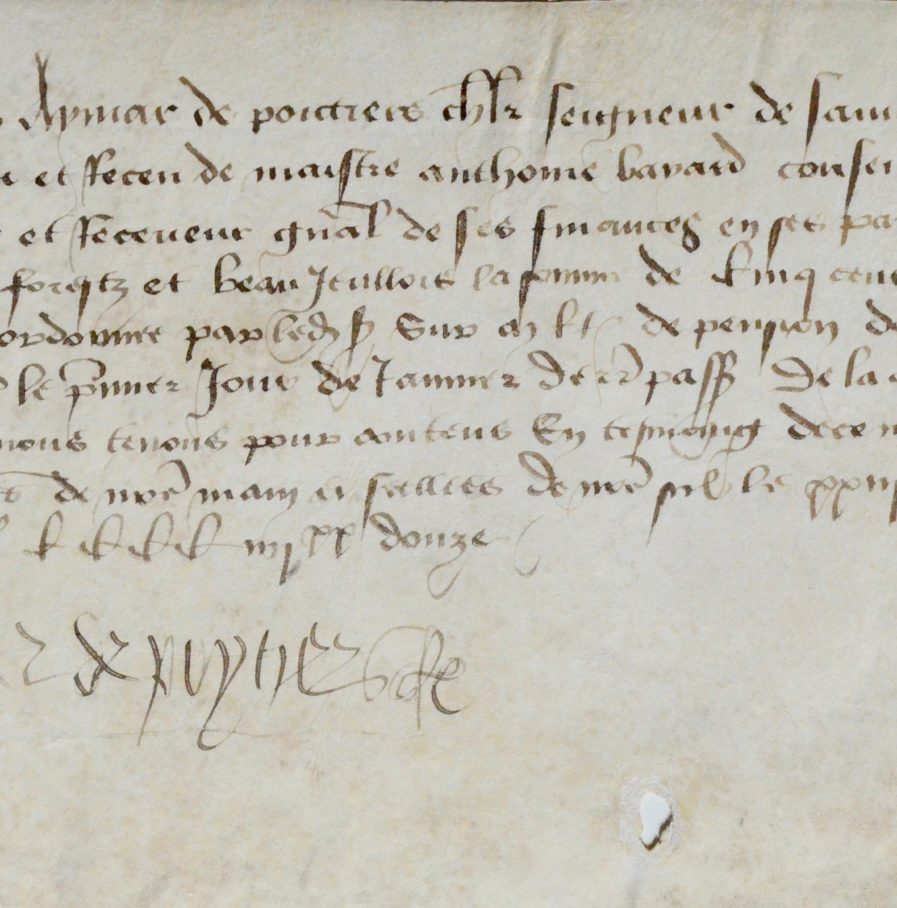 Aymar de poictiers chlr seigneur de sain
et Receu de maistre anthoine bayard consei
et Receveur gnal de ses finances en ses pa
forestz et beau Jeullois la somme de Cinq cens
ordonnee par led s Sur de pension de
le pmier Jour de Janvier derr pass De la
nous tenons pour contens En tesmoing de ce n
de nre main et sellees de nre le xxii
C C C C iiii xx douze
de poytiers